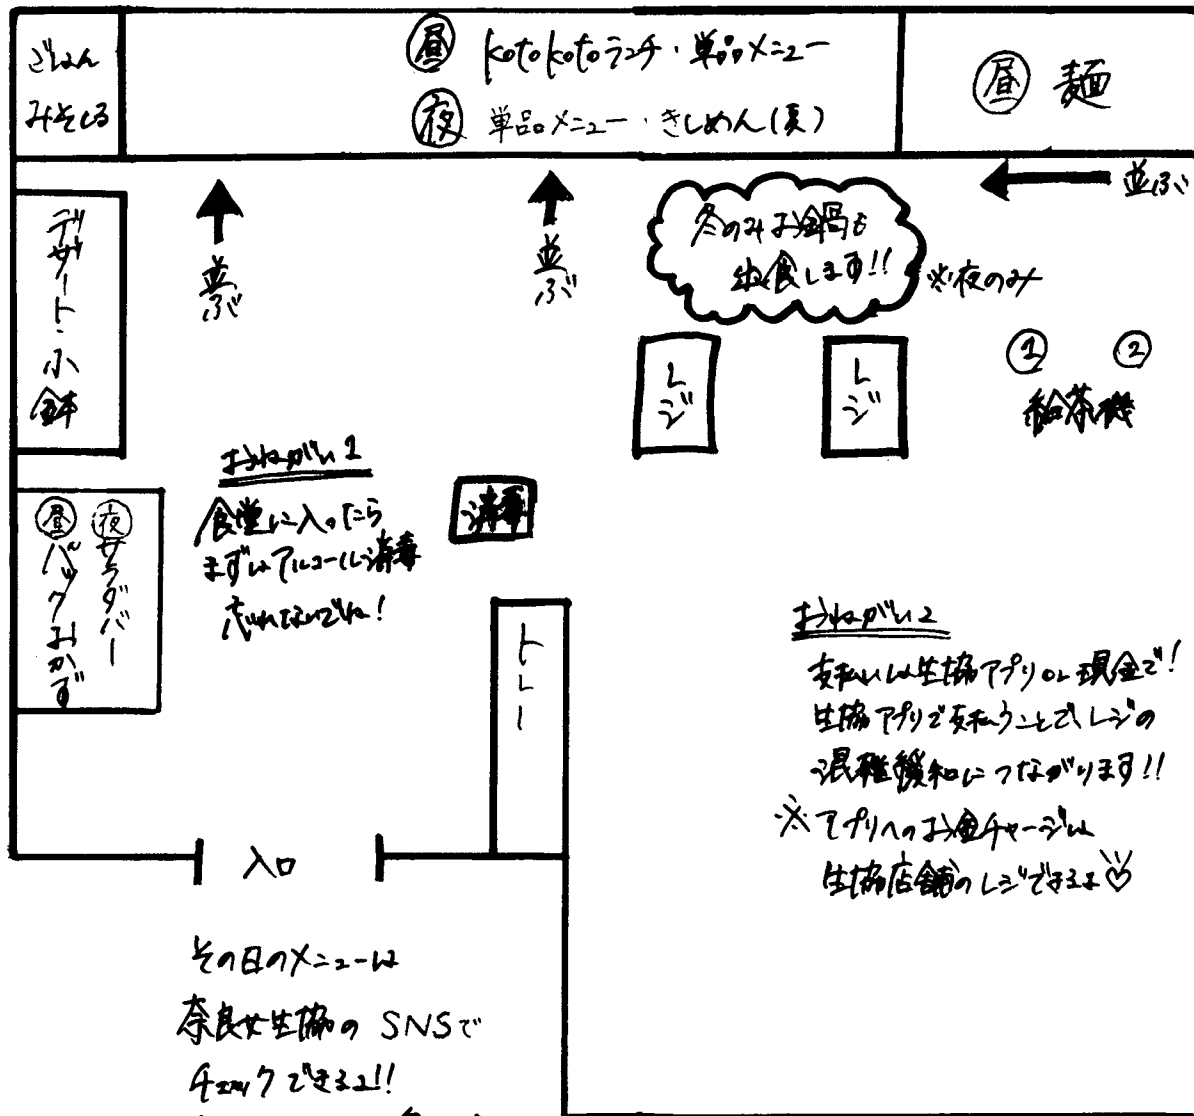 ごはん
みそしる
昼 kotokotoランチ・単品メニュー
夜 単品メニュー・きしめん(夏)
昼 麺
並ぶ
並ぶ
並ぶ
冬のみお鍋も
出食します!!
※夜のみ
デザート・小鉢
レジ
レジ
① ②
給茶機
おねがい1
食堂に入ったら
まずはアルコール消毒
忘れないでね!
消毒
夜 サラダバー
昼 パックおかず
トレー
おねがい2
支払いは生協アプリor現金で!
生協アプリで支払うことで、レジの
混雑緩和につながります!!
※アプリへのお金チャージは
生協店舗のレジでできるよ♡
入口
その日のメニューは
奈良女生協のSNSで
チェックできるよ!!